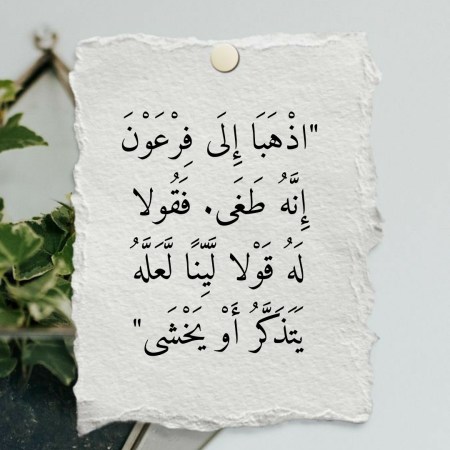 "اذْهَبَا إِلَى فِرْعَوْنَ
إِنَّهُ طَغَى. فَقُولا
لَهُ قَوْلا لَّيِّنًا لَّعَلَّهُ
يَتَذَكَّرُ أَوْ يَخْشَى"